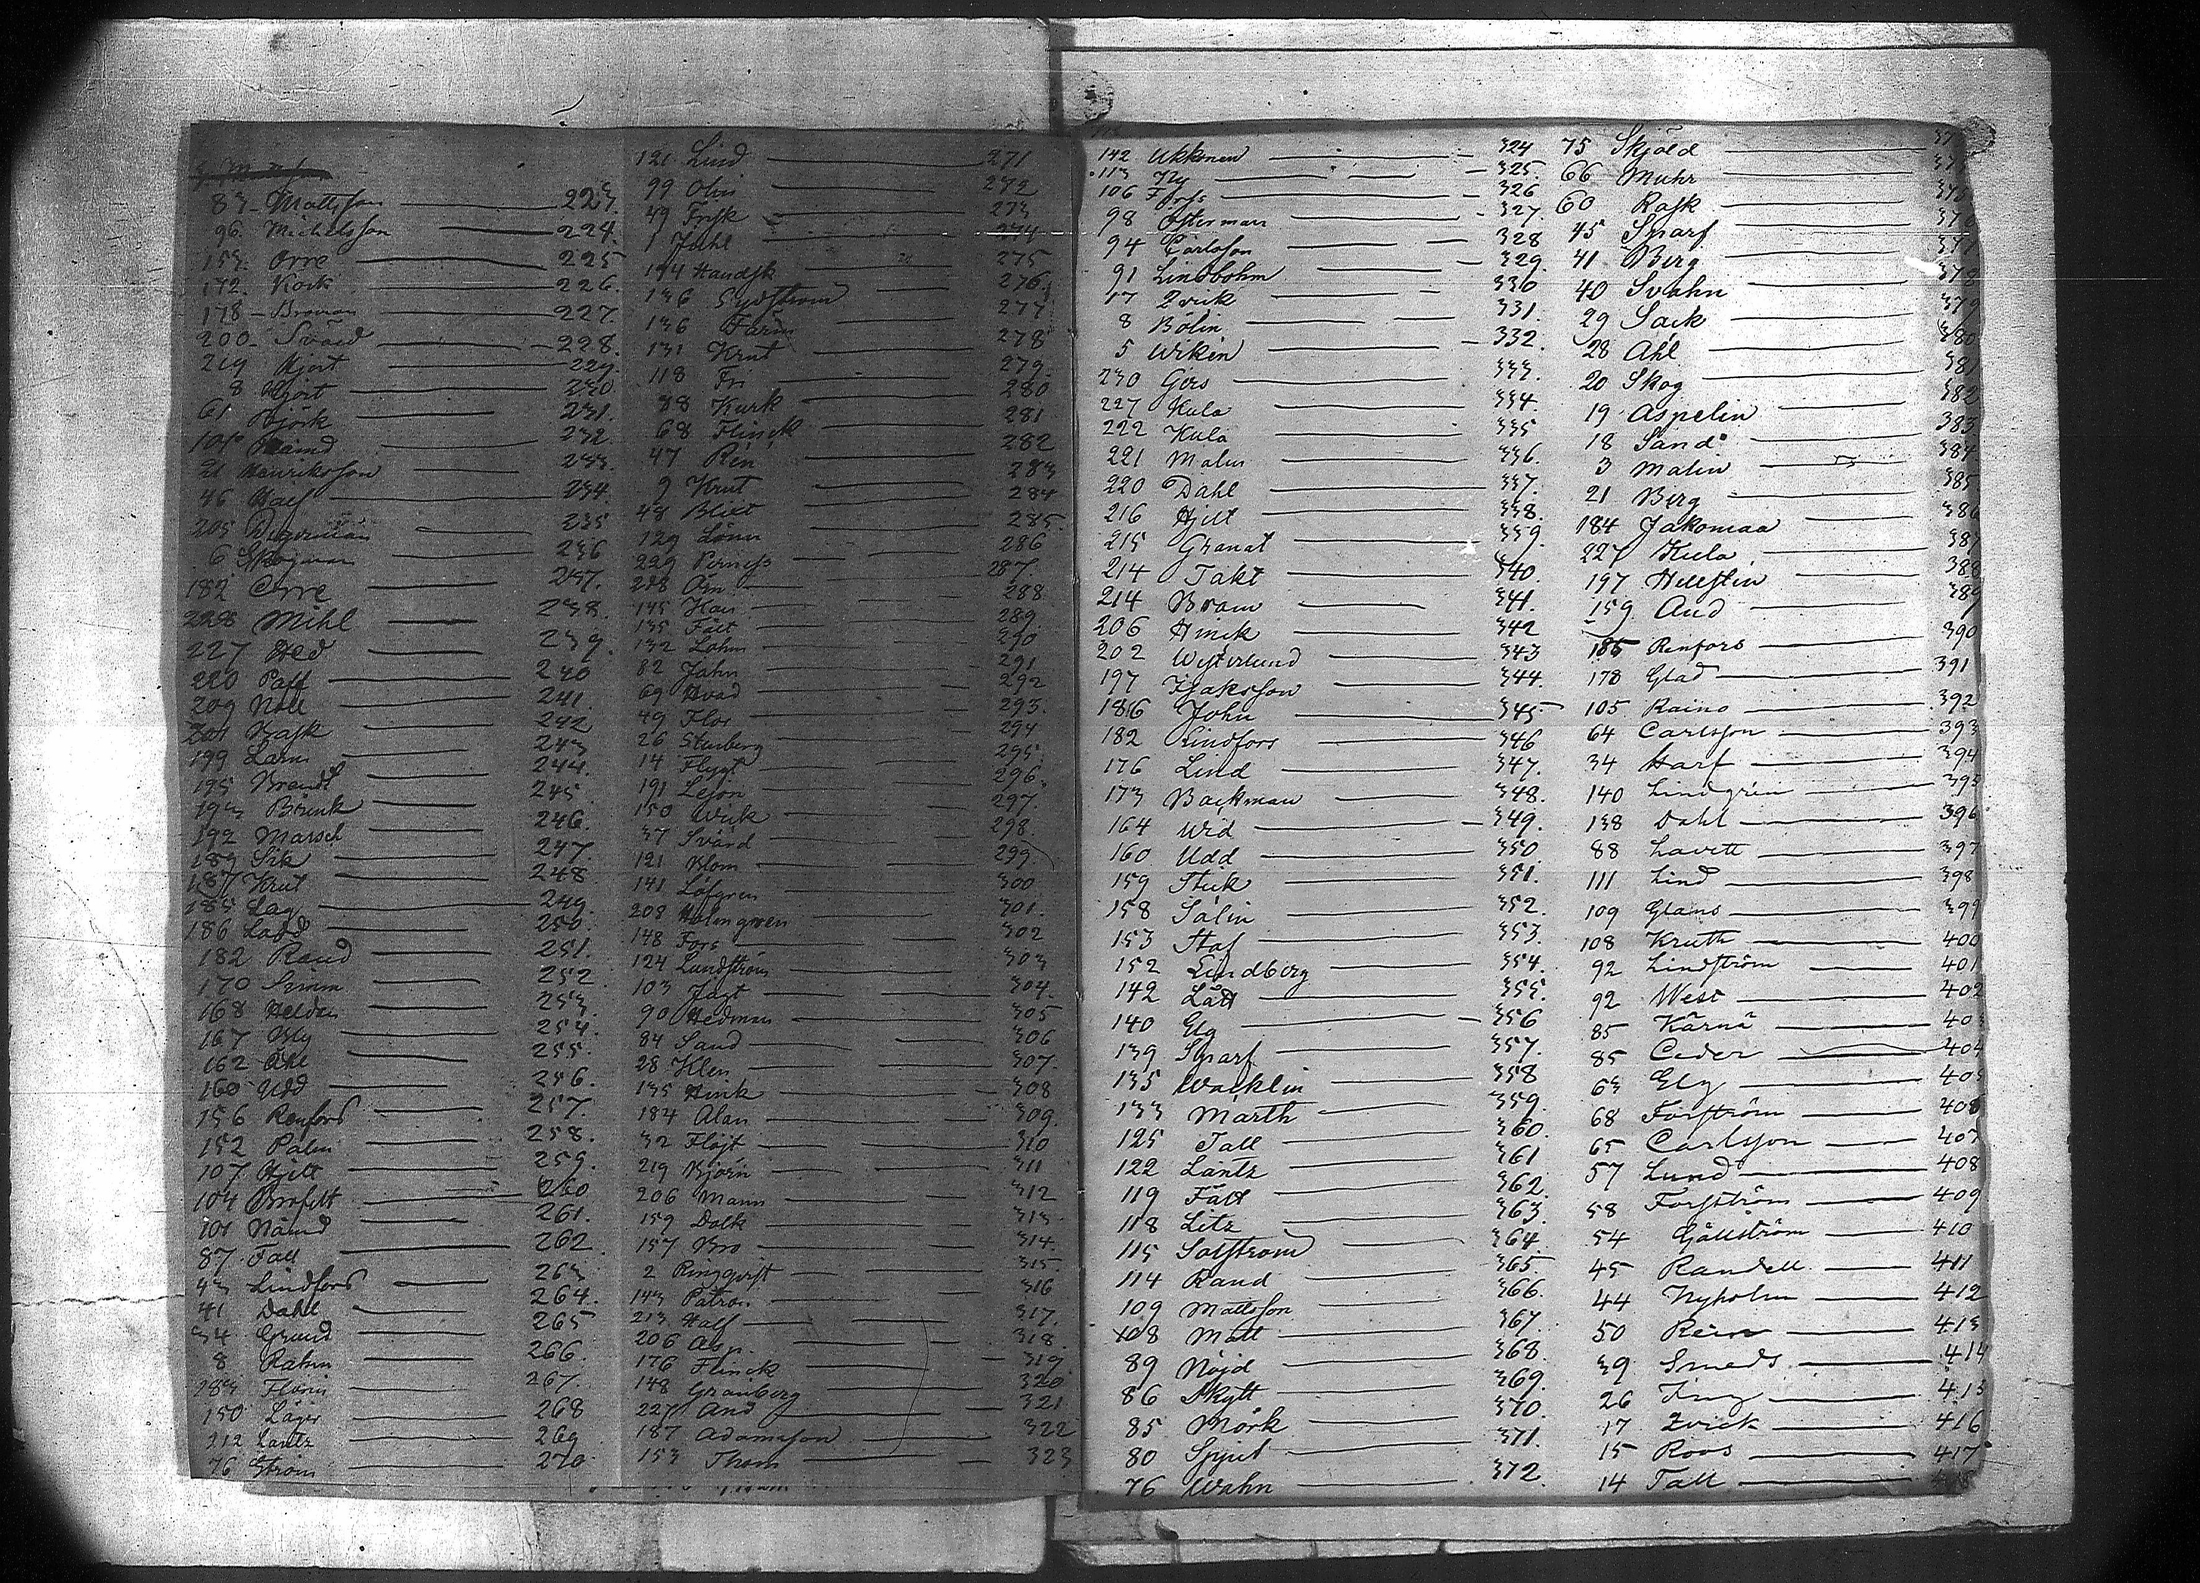 83 Mattsson 223.
96 Michelsson 224.
153 Orre 225
172. Kock 226.
178 Broman 227.
200 Svärd 228.
219 Hjort 229.
8 Hjort 230
61 Björk 231.
101 Nämd 232
21 Henriksson 233
46 Half 234
205 Degerman 235
6 Skogman 236
182 Orre 237.
228 Mihl 238.
227 Hed 239.
220 Paff 240
209 Nöll 241.
201 Rask 242
199 Larm 243
195 Brandt 244.
193 Brink 245
192 Marsch 246.
189 Sik 247.
187 Krut 248
185 Lag 249.
186 Ladd 250.
182 Rand 251.
170 Grimm 252.
168 Heldén 253.
167 Bly 254.
162 Ahl 255.
160 Udd 256.
156 Renfors 257.
152 Palm 258.
107. Hjelt 259.
104 Brofelt 260
101 Nämd 261.
87 Tall 262.
43 Lindfors 263
41 Dahl 264.
34 Grund 265
8 Rahm 266.
Florin 267
150 Läger 268
212 Lantz 269
76 Ström 270
121 Lind 271
99 Olin 272
49 Frisk 273
1 Dahl 274
194 Handsk 275
136 Sydström 276.
136 Färm 277
131 Krut 278
118 Fri 279.
88 Kurk 280
68 Flinck 281
47 Ren 282
9 Krut 283
48 Blixt 284
129 Lönn 285.
229 Perniss 286
228 Örn 287.
145 Han 288
135 Fält 289.
132 Lohm 290
82 Jahn 291
69 Hvad 292
49 Flor 293.
26 Stenberg 294
14 Flygt 295
191 Lejon 296
150 Wick 297.
37 Svärd 298.
121 Blom 299
141 Löfgren 300
208 Holmgren 301.
148 Fors 302
124 Lundström 303
103 Jagt 304.
90 Hedman 305
84 Sand 306
28 Klen 307.
135 Hink 308
184 Alan 309.
32 Flöjt 310
219 Björn 311
206 Mann 312
159 Dolk 313
157 Bro 314.
2 Ringqvist 315.
143 Patron 316
213 Half 317.
206 As 318.
176 Flinck 319
148 Granberg 320
227 And 321
187 Adamsson 322
153 Thom 323
142 Ukkonen 324
113 Ny 325.
106 Forss 326
98 Österman 327.
94 Carlsson 328
91 Lindbohm 329.
17 Zvick 330
8 Bölin 331.
5 Wikén 332.
230 Gers 333.
227 Kula 334.
222 Kula 335
221 Malm 336.
220 Dahl 337.
216 Hjelt 338.
215 Granat 339.
214 Takt 340.
214 Bram 341.
206 Hinck 342
202 Westerlund 343
197 Isaksson 344.
186 John 345
182 Lindfors 346
176 Lind 347.
173 Backman 348.
164 Wid 349.
160 Udd 350
159 Stick 351.
158 Sälin 352.
153 Staf 353.
152 Lindberg 354.
142 Lätt 355.
140 Elg 356
139 Snarf 357.
135 Wacklin 358
133 Marth 359.
125 Tall 360.
122 Lantz 361
119 Fält 362.
118 Litz 363.
115 Solström 364
114 Rand 365
109 Mattsson 366.
108 Matt 367
89 Nöjd 368.
86 Skytt 369.
85 Mörk 370
80 Spjut 371.
76 Wahn 372
75 Skjöld
66 Muhr
60 Rask
45 Snarf
41 Berg 377
40 Svahn 378
29 Säck 379
28 Ahl 380
20 Skog 381
19 Aspelin 382
18 Sand 383
3 Malin 384
21 Berg 385
184 Jakomaa 386
227 Kula 387
197 Hellstén 388
159. And 389
185 Renfors 390
178 Glad 391
105 Raino 392
64 Carlsson 393
34 Harf 394
140 Lindgrén 395
138 Dahl 396
88 Lavett 397
111 Lind 398
109 Glans 399
108 Kruth 400
92 Lindström 401
92 West 402
85 Kärnä 403
85 Ceder 404
63 Elg 405
68 Forsström 406
65 Carlsson 407
57 Lund 408
58 Forsström 409
54 Gällström 410
45 Randell 411
44 Nyholm 412
50 Rein 413
39 Smeds 414
26 Fing 415
17 Zvick 416
15 Roos 417
14 Tall 418